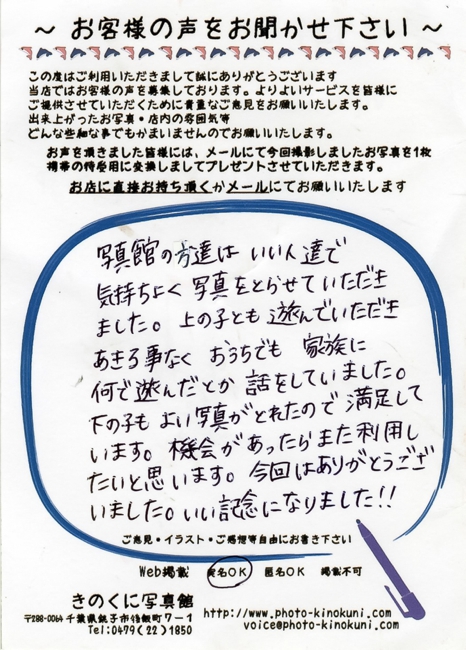 ～ お客様の声をお聞かせ下さい ～
この度はご利用いただきまして誠にありがとうございます
当店ではお客様の声を募集しております。よりよいサービスを皆様に
ご提供させていただくために貴重なご意見をお願いいたします。
出来上がったお写真・店内の雰囲気等
どんな些細な事でもかまいませんのでお願いいたします。
お声を頂きました皆様には、メールにて今回撮影しましたお写真を1枚
携帯の待受用に変換しましてプレゼントさせていただきます。
お店に直接お持ち頂くかメールにてお願いいたします
写真館の方達は いい人達で
気持ちよく 写真をとらせていただき
ました。上の子とも 遊んでいただき
あきる事なく おうちでも 家族に
何で遊んだとか 話をしていました。
下の子も よい写真がとれたので 満足して
います。機会があったらまた利用し
たいと思います。今回はありがとうござ
いました。いい記念になりました!!
ご意見・イラスト・ご感想等自由にお書き下さい
Web掲載 実名OK 匿名OK 掲載不可
きのくに写真館
〒288-0064 千葉県銚子市後飯町7-1
Tel:0479(22)1850
http://www.photo-kinokuni.com/
voice@photo-kinokuni.com